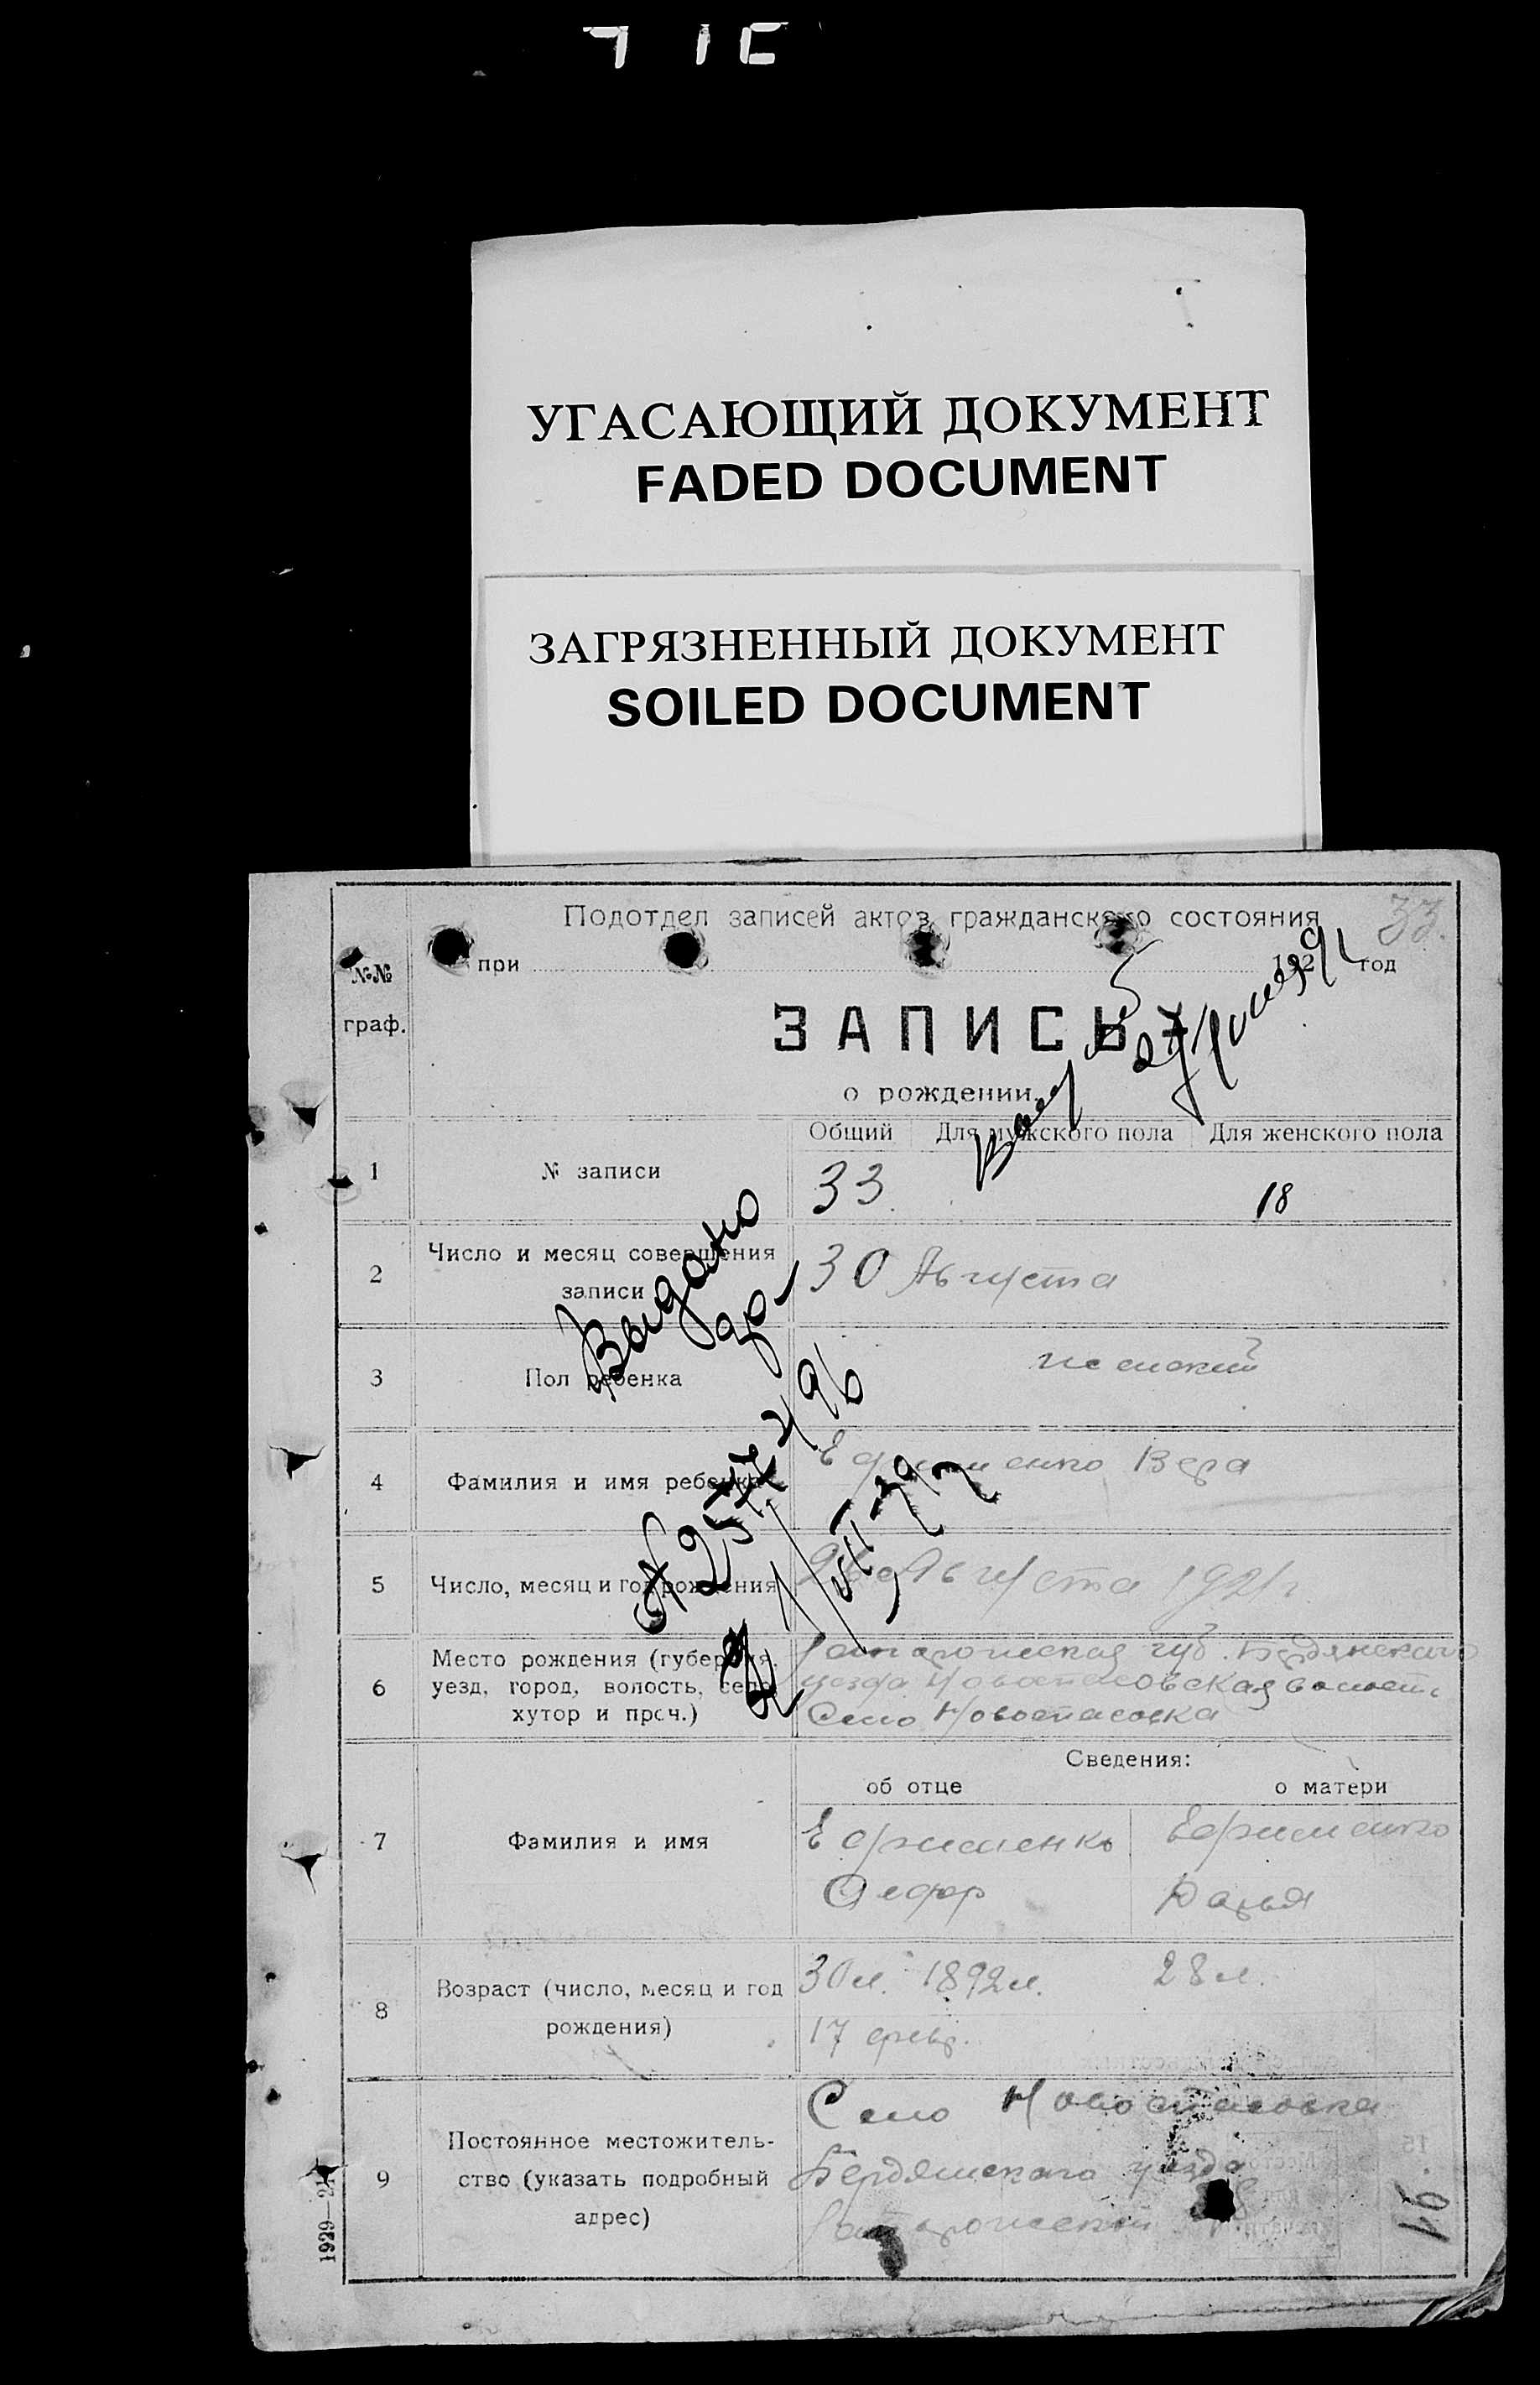 УГАСАЮЩИЙ ДОКУМЕНТ
FADED DOCUMENT
ЗАГРЯЗНЕННЫЙ ДОКУМЕНТ
SOILED DOCUMENT
Подотдел записей актов гражданского состояния
33.
№№
граф.
при 192 год
ЗАПИСЬ
о рождении
Общий Для мужского пола Для женского пола
1 № записи 33. 18
2 Число и месяц совершения
записи 30 Августа
3 Пол ребенка женский
4 Фамилия и имя ребенка Ефименко Вера
5 Число, месяц и год рождения Августа 1921 г.
6 Место рождения (губерния,
уезд, город, волость, село,
хутор и проч.)
Запорожская губ. Бердянского
уезда Новоспасовская волость
Село Новоспасовка
Сведения:
об отце о матери
7 Фамилия и имя Ефименко Ефименко
Дарья
8 Возраст (число, месяц и год
рождения)
30 л. 1892 28 л.
17 февр.
9 Постоянное местожитель-
ство (указать подробный
адрес)
Село Новоспасовка
Бердянского уезда
Запорожской
Выдано
1929—21